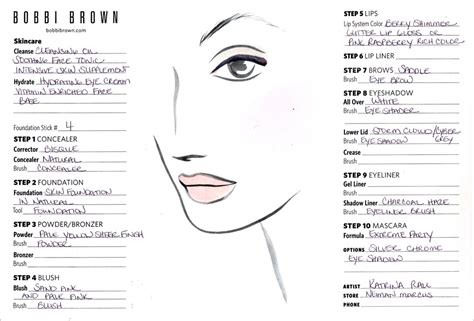 BOBBI BROWN
bobbibrown.com
Skincare
Cleanse CLEANSING OIL
SOOTHING FACE TONIC
INTENSIVE SKIN SUPPLEMENT
Hydrate HYDRATING EYE CREAM
VITAMIN ENRICHED FACE
BASE
Foundation Stick # 4
STEP 1 CONCEALER
Corrector BISQUE
Concealer NATURAL
Brush CONCEALER
STEP 2 FOUNDATION
Foundation SKIN FOUNDATION
IN NATURAL
Tool FOUNDATION
STEP 3 POWDER/BRONZER
Powder PALE YELLOW SHEER FINISH
Brush POWDER
Bronzer
Brush
STEP 4 BLUSH
Blush SAND PINK
AND PALE PINK
Brush BLUSH
STEP 5 LIPS
Lip System Color BERRY SHIMMER
GLITTER LIP GLOSS OR
PINK RASPBERRY RICH COLOR
STEP 6 LIP LINER
STEP 7 BROWS SADDLE
Brush EYE BROW
STEP 8 EYESHADOW
All Over WHITE
Brush EYE SHADER
Lower Lid STORM CLOUD/CYBER
Brush EYE SHADOW GREY
Crease
Brush
STEP 9 EYELINER
Gel Liner
Shadow Liner CHARCOAL HAZE
Brush EYELINER BRUSH
STEP 10 MASCARA
Formula EXTREME PARTY
OPTIONS SILVER CHROME
EYE SHADOW
ARTIST KATRINA RALL
STORE NEIMAN MARCUS
PHONE